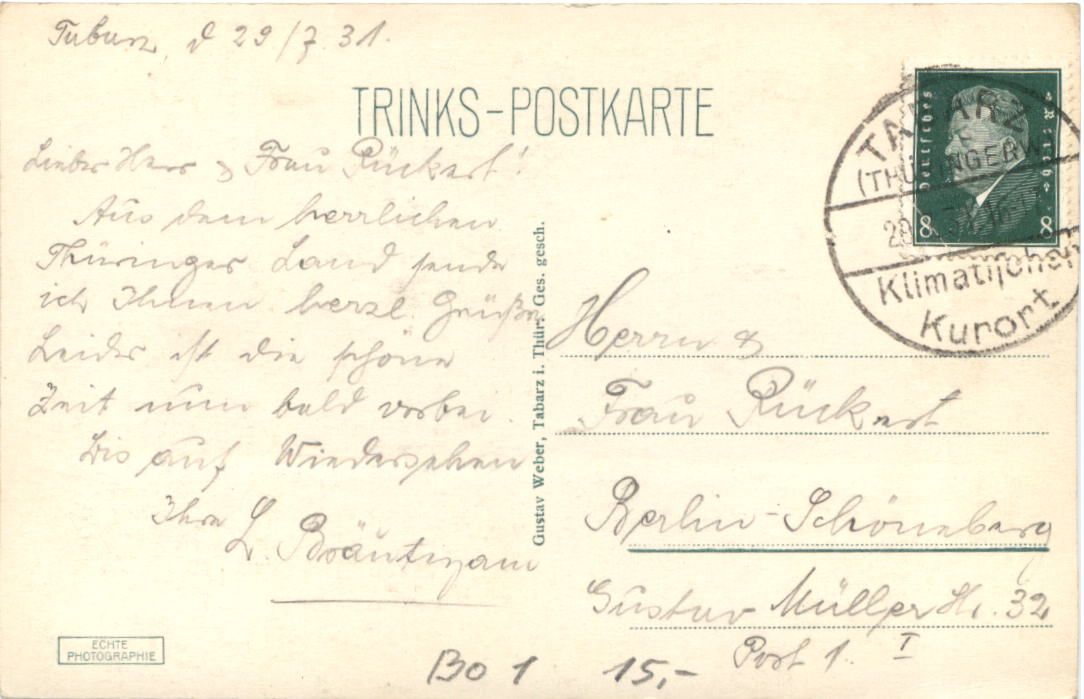 Tabarz, d 29/7. 31.
TRINKS-POSTKARTE
Lieber Herr & Frau Rückert!
Aus dem herrlichen
Thüringer Land sende
ich Ihnen herzl. Grüße
Leider ist die schöne
Zeit nun bald vorbei.
Bis auf Wiedersehen
Ihre
L. Bräutigam
Gustav Weber, Tabarz i. Thür. Ges. gesch.
Deutsches Reich
8 8
TABARZ
(THÜRINGERW
Klimatischer
Kurort
Herrn &
Frau Rückert
Berlin-Schöneberg
Gustav Müller Str. 32
Port 1. I
ECHTE
PHOTOGRAPHIE
BO 1 15,-